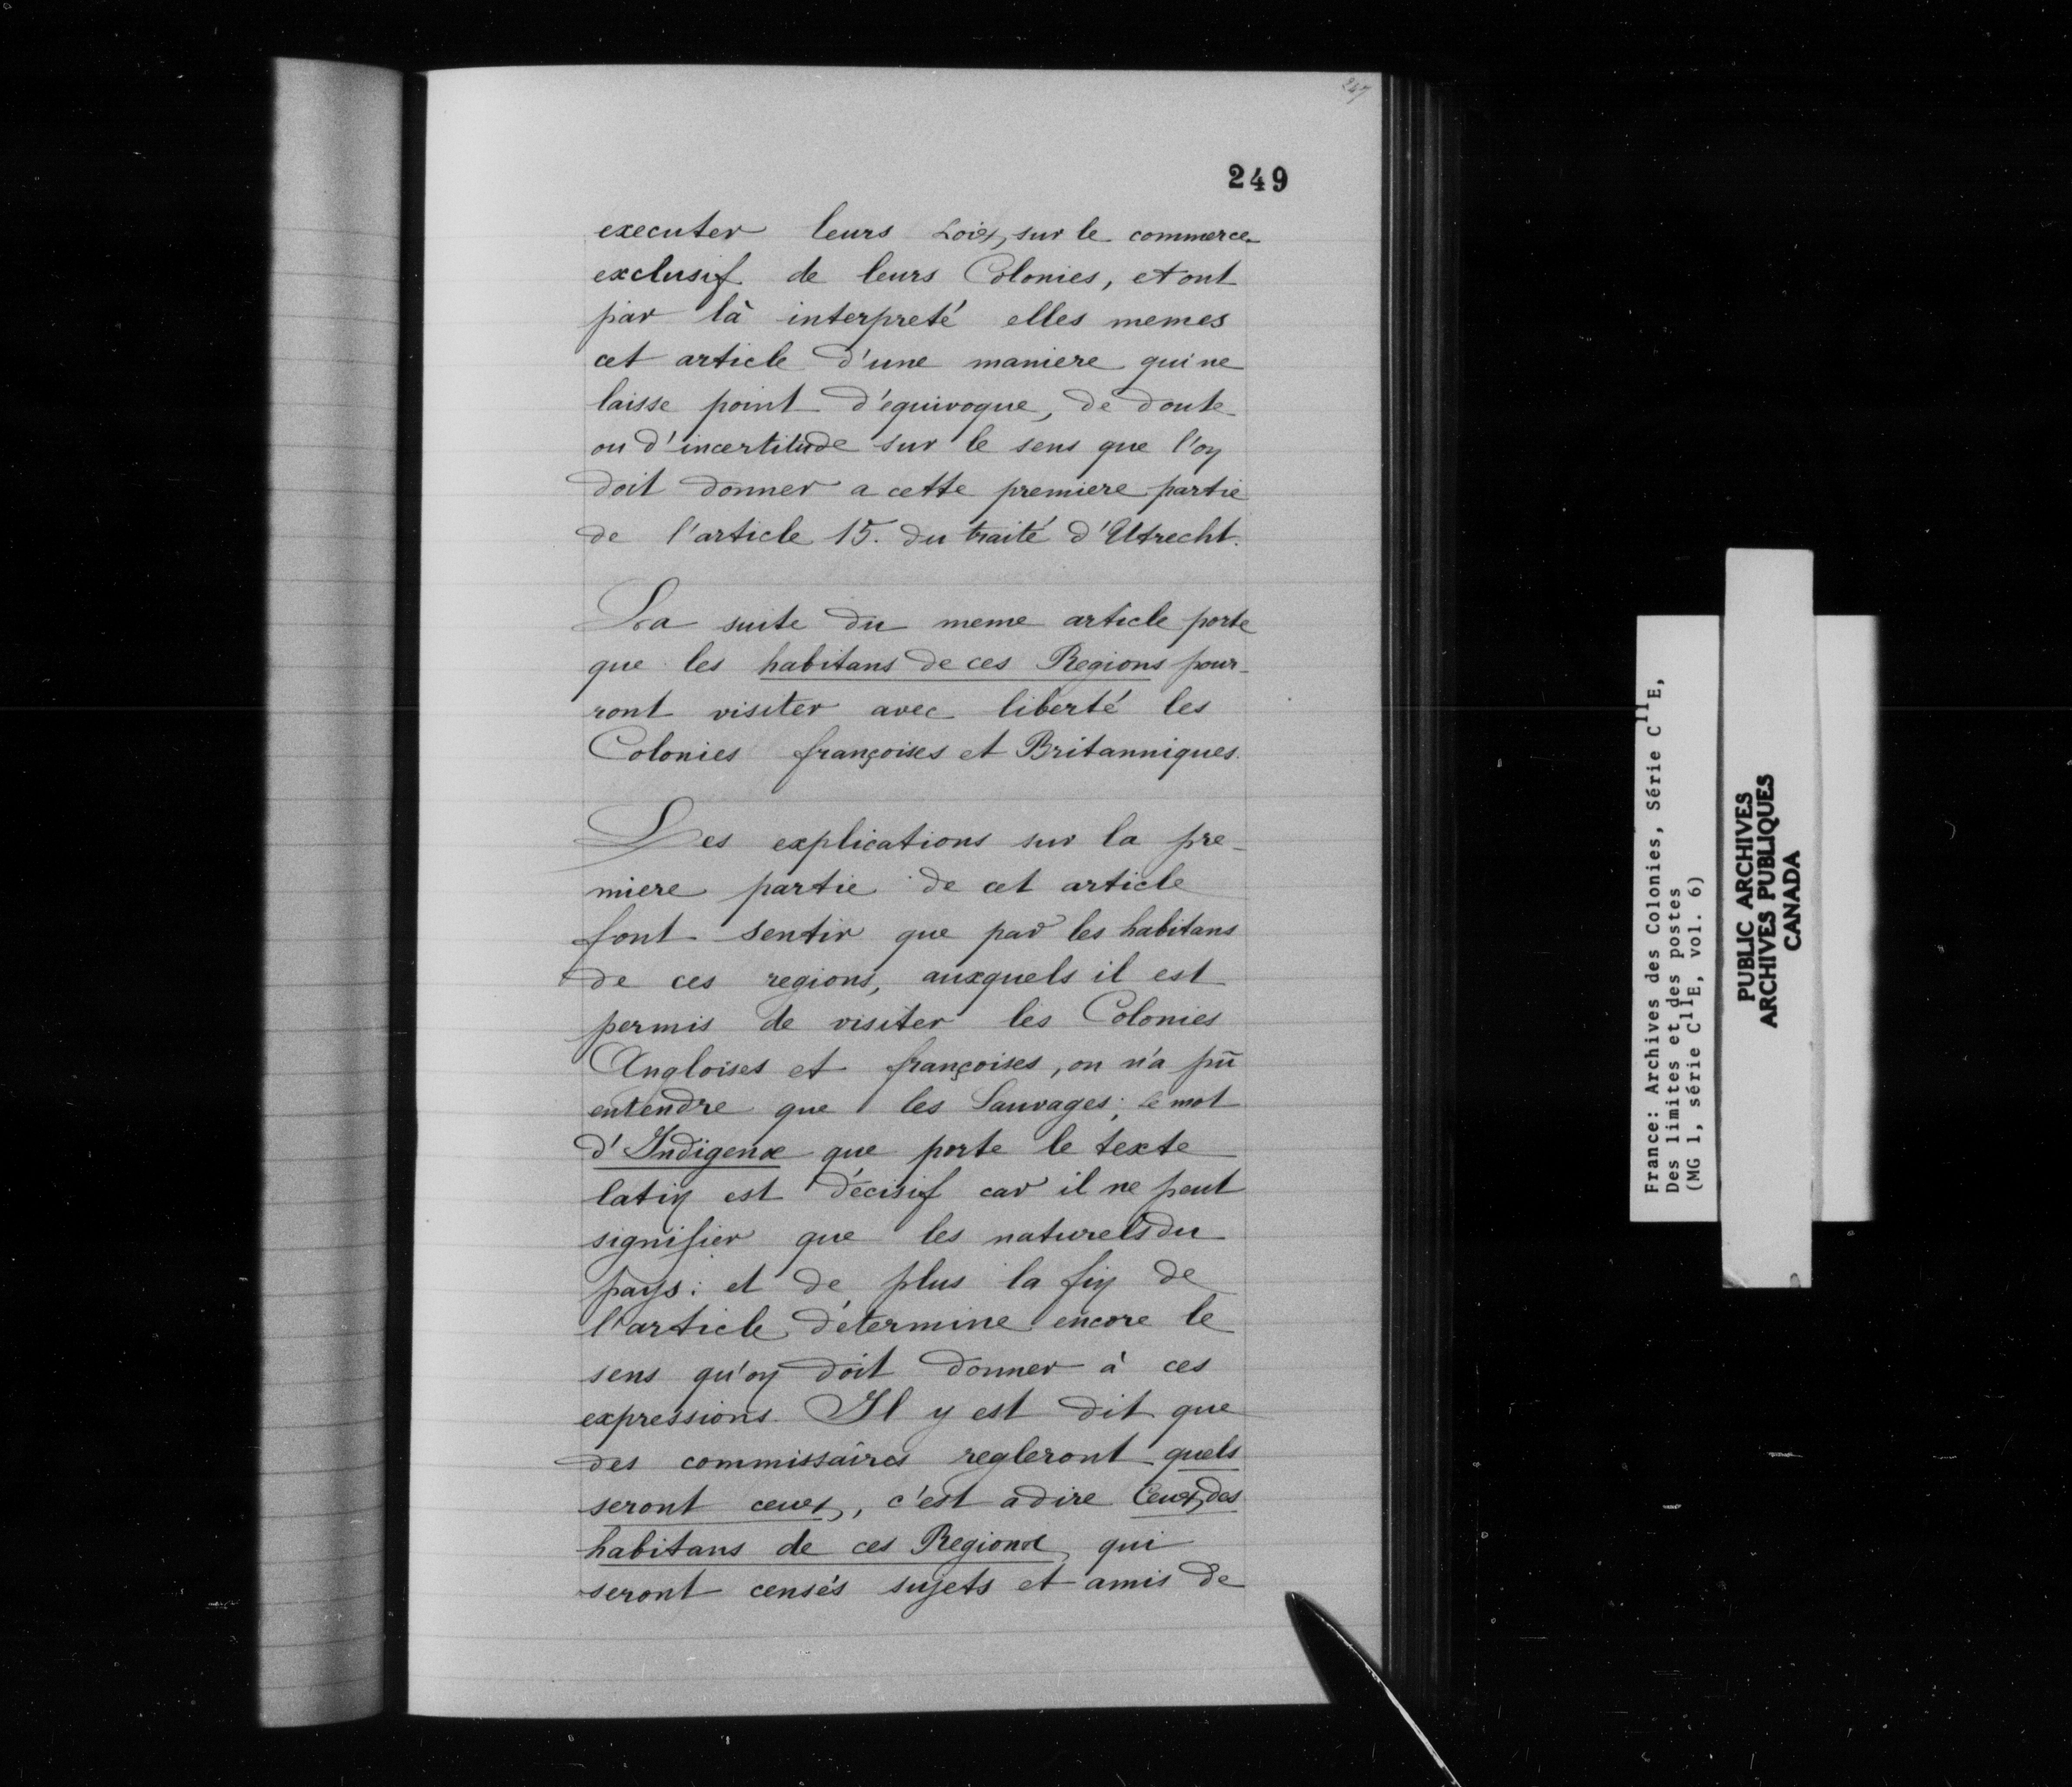 247
249
executer leurs Loix, sur le commerce
exclusif de leurs Colonies, et ont
par là interpreté elles memes
cet article d'une maniere qui ne
laisse point d'équivoque, de doute
ou d'incertitude sur le sens que l'on
doit donner a cette premiere partie
de l'article 15. du traité d'Utrecht.
La suite du meme article porte
que les habitans de ces Regions pour-
ront visiter avec liberté les
Colonies françoises et Britanniques.
Les explications sur la pre-
miere partie de cet article
font sentir que par les habitans
de ces regions, auxquels il est
permis de visiter les Colonies
Angloises et françoises, on n'a pû
entendre que les Sauvages; le mot
d'Indigenæ que porte le texte
latin est décisif car il ne peut
signifier que les naturels du
pays: et de plus la fin de
l'article détermine encore le
sens qu'on doit donner à ces
expressions. Il y est dit que
des commissaires regleront quels
seront ceux, c'est a dire Ceux des
habitans de ces Regions qui
seront censés sujets et amis de
France: Archives des Colonies, Série C11E,
Des limites et des postes
(MG 1, série C11E, vol. 6)
PUBLIC ARCHIVES
ARCHIVES PUBLIQUES
CANADA